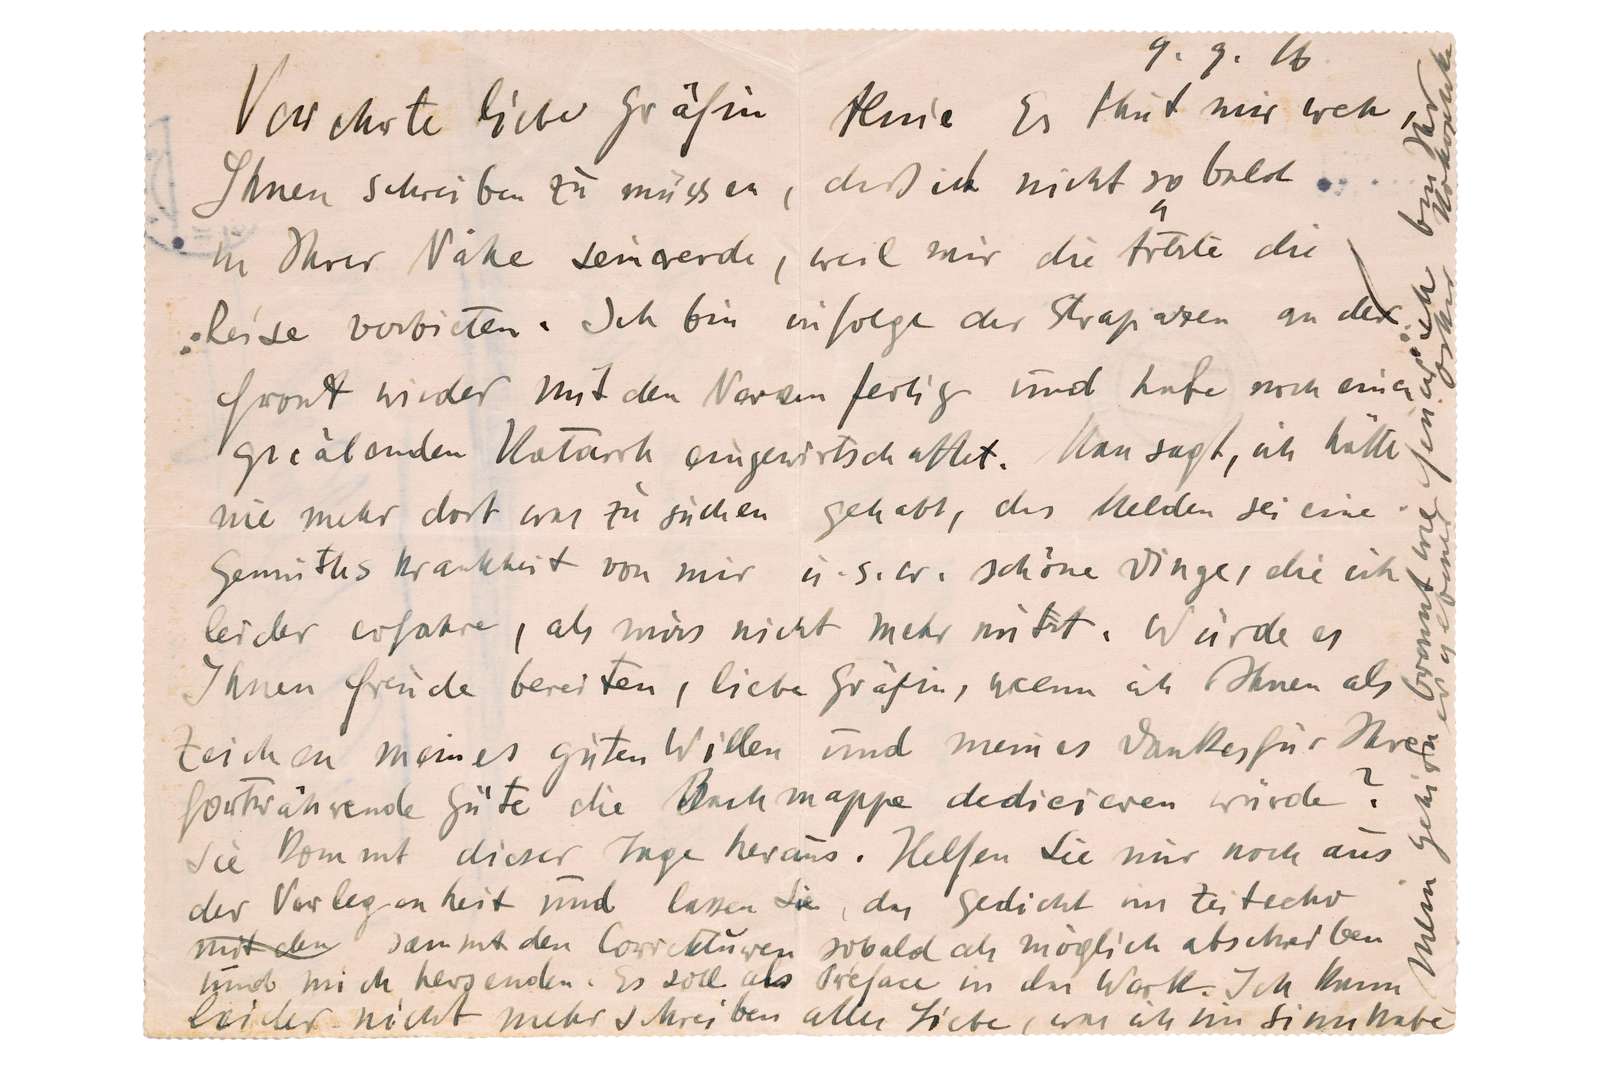 9. 9. 16
Verehrte liebe Gräfin Es thut mir weh,
Ihnen schreiben zu müssen, daß ich nicht so bald
in Ihrer Nähe sein werde, weil mir die Ärzte die
Reise verbieten. Ich bin infolge der Strapazen an der
Front wieder mit den Nerven fertig und habe noch einen
Katarrh eingewirtschaftet. Man sagt, ich hätte
nie mehr dort was zu suchen gehabt, das Melden sei eine
Gemüthskrankheit von mir u.s.w. schöne Dinge, die ich
leider erfahre, als mirs nicht mehr nützt. Würde es
Ihnen Freude bereiten, liebe Gräfin, wenn ich Ihnen als
Zeichen meines guten Willen und meines Dankes für Ihre
fortwährende Güte die Bachmappe dedicieren würde?
Sie kommt dieser Tage heraus. Helfen Sie mir noch aus
der Verlegenheit und lassen Sie, das Gedicht im Zeitecho
mit den sammt den Correkturen sobald als möglich abschreiben
und mich hersenden. Es soll als Préface in das Werk. Ich kann
leider nicht mehr schreiben alles Liebe, was ich im Sinn habe
Mein Gehirn brennt wie bin Ihr
ergebener Oskar Kokoschka